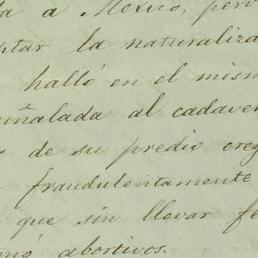 a Mexico, pero
ptar la naturaliza
halló en el mism
uñalada al cadaver
de su predio crey
fraudulentamente
que sin llevar fe
abortivos.